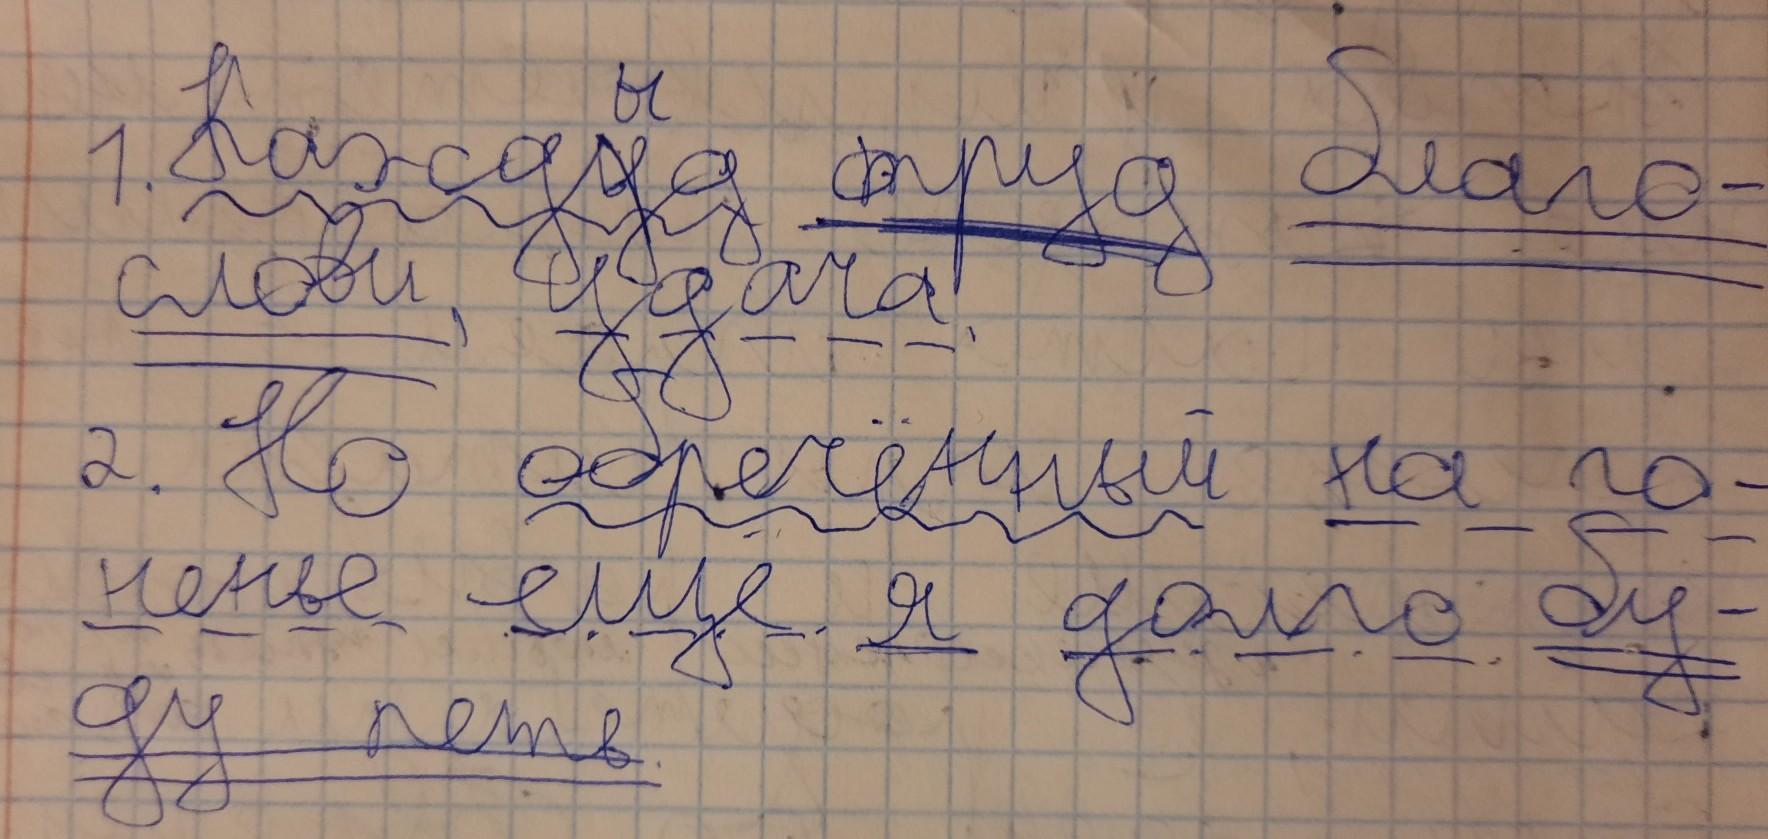 1. Каждыд труд благо-
слови, удача.
2. Но обречённый на го-
ненье еще я долго бу-
ду петь.